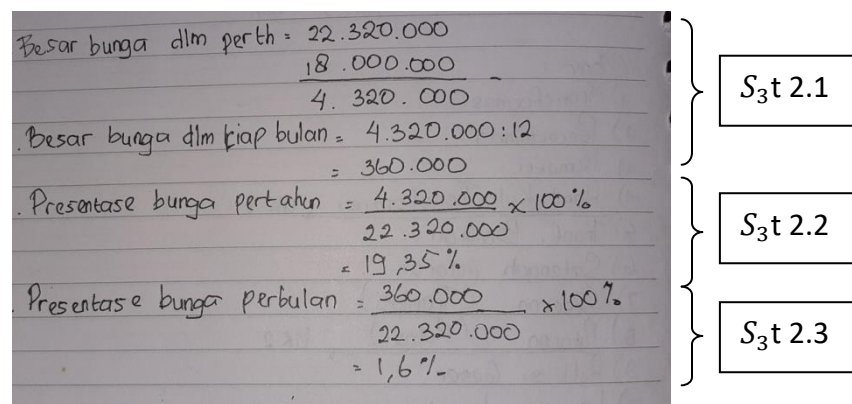 Besar bunga dlm perth = 22.320.000
18.000.000 -
4.320.000
. Besar bunga dlm tiap bulan = 4.320.000:12
= 360.000
. Presentase bunga pertahun = 4.320.000 x 100%
22.320.000
= 19,35%
. Presentase bunga perbulan = 360.000 x 100%
22.320.000
= 1,6%
S₃t 2.1
S₃t 2.2
S₃t 2.3